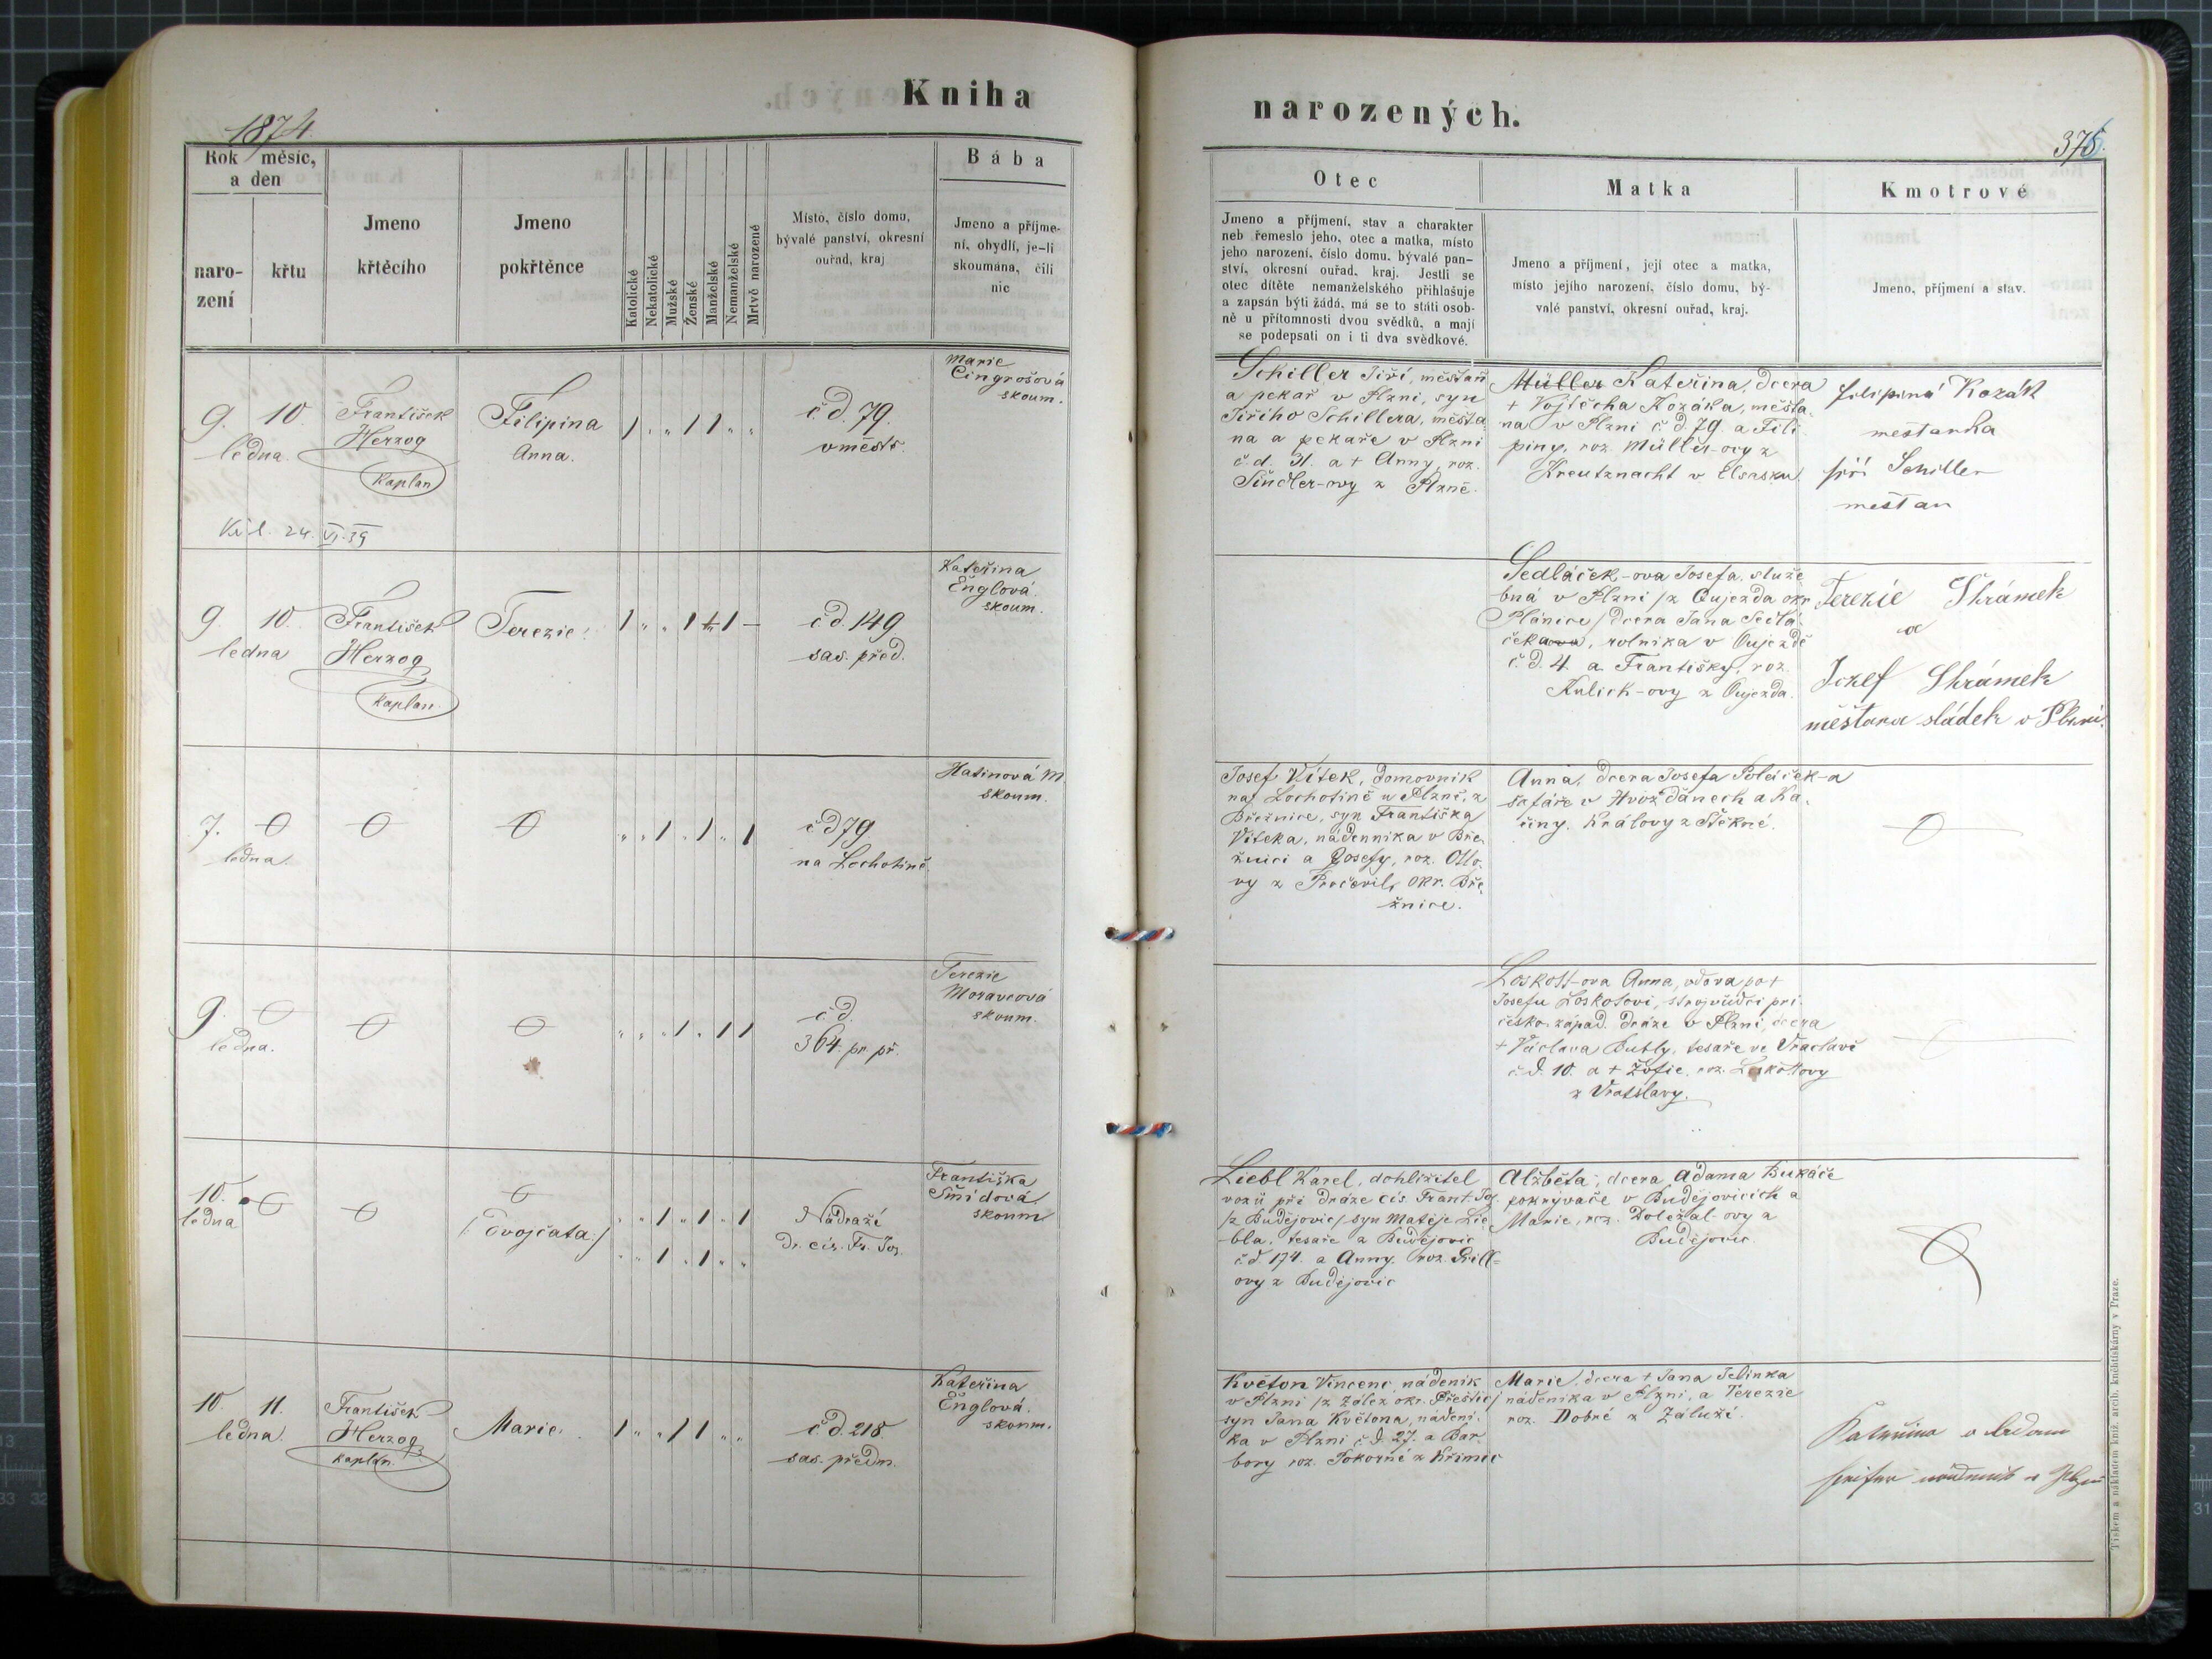 Kniha
narozených.
1874.
375.
Rok měsíc,
a den
naro-
zení
křtu
Jmeno
křtěcího
Jmeno
pokřtěnce
Katolické
Nekatolické
Mužské
Ženské
Manželské
Nemanželské
Mrtvě narozené
Místo, číslo domu,
bývalé panství, okresní
ouřad, kraj
Bába
Jmeno a příjme-
ní, obydlí, je-li
skoumána, čili
nic
Otec
Jmeno a příjmení, stav a charakter
neb řemeslo jeho, otec a matka, místo
jeho narození, číslo domu, bývalé pan-
ství, okresní ouřad, kraj. Jestli se
otec dítěte nemanželského přihlašuje
a zapsán býti žádá, má se to státi osob-
ně u přítomnosti dvou svědků, a mají
se podepsati on i ti dva svědkové.
Matka
Jmeno a příjmení, její otec a matka,
místo jejího narození, číslo domu, bý-
valé panství, okresní ouřad, kraj.
Kmotrové
Jmeno, příjmení a stav.
9. 10.
ledna.
František
Herzog
Kaplan
Filipina
Anna.
č d. 79.
v městě.
Marie
Cingrošová
skoum.
24. VI. 39
Schiller Jiří, měšťan
a pekař v Plzni, syn
Jiřího Schillera, měšťa
na a pekaře v Plzni
č. d. 31. a + Anny, roz.
Šindler-ovy z Plzně.
Müller Kateřina, dcera
+ Vojtěcha Kozáka, měšťa
na v Plzni č d. 79. a Fili
piny, roz. Müller-ovy z
Kreutznacht v Elsasku.
Filipina Kozák
mešťanka
Jiří Schiller
mešťan
9. 10.
ledna
František
Herzog
Kaplan.
Terezie.
č. d. 149
sas. před.
Kateřina
Englová.
skoum.
Sedláček-ova Josefa, služe
bná v Plzni /z Oujezda okr
Plánice/ dcera Jana Sedlá
čekaova, rolníka v Oujezdě
č. d. 4. a Františky, roz.
Kulich-ovy z Oujezda.
Terezie Shrámek
a
Jozef Shrámek
měšťan a sládek v Plzni.
7.
ledna.
č d 79.
na Lochotíně.
Hatinová M.
skoum.
Josef Vítek, domovník
na Lochotíně u Plzně, z
Březnice, syn Františka
Víteka, nádenníka v Bře
žnici a Josefy, roz. Otto
vy z okr. Bře
žnice.
Anna, dcera Josefa
šafáře v Hvožďanech a Ka
řiny. Královy z Štěkné.
9.
ledna.
č. d.
364. pr. př.
Terezie
Moravcová
skoum.
Loskott-ova Anna, vdova po +
Josefu Loskotovi, strojvůdci při
česko. západ. dráze v Plzni, dcera
+ Václava Butly, tesaře ve Vraclavě
č. d. 10. a + Žofie, roz. Loskottovy
z Vratslavy.
10.
ledna
/: Dvojčata :/
Nádraží
Dr. cís. Fr. Jos.
Františka
Šmídová
skoum
Liebl Karel, dohlížitel
vozů při dráze cís. Frant Jos.
/z Budějovic/ syn Matěje Lie
bla, tesaře z Budějovic
č. d. 174. a Anny, roz.
ovy z Budějovic
Alžběta, dcera Adama Bukáče
pokrývače v Budějovicích a
Marie, roz. Doležal-ovy z
Budějovic.
10. 11.
ledna.
František
Herzog
Kaplan.
Marie.
č. d. 218.
sas. předm.
Kateřina
Englová.
skoum.
Květon Vincenc, nádeník
v Plzni /z Zález okr. Přeštic/
syn Jana Květona, nádení.
ka v Plzni č d. 27. a Bar
bory roz. Pokorné z Křimic
Marie, dcera + Jana Jelínka
nádeníka v Plzni, a Terezie
roz. Dobré z Záluží.
Kateřina a Adam
Tiskem a nákladem kníž. arcib. knihtiskárny v Praze.